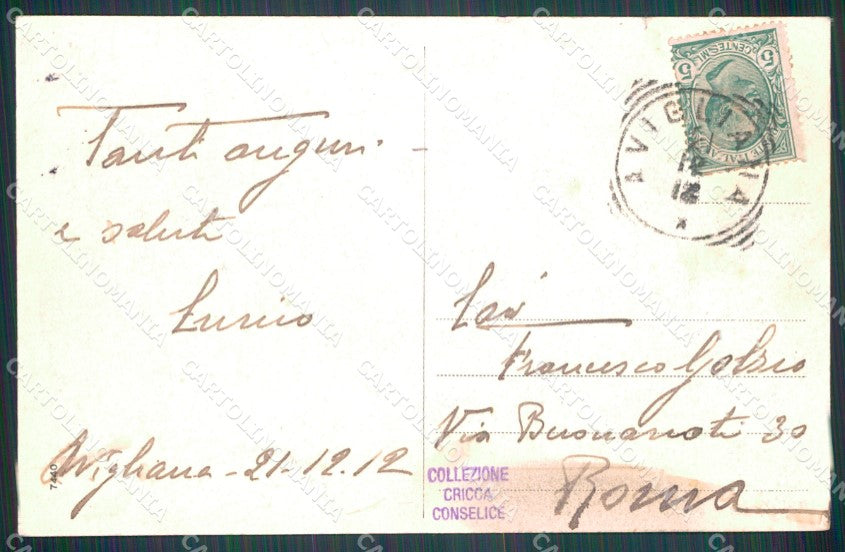 Tanti auguri -
e saluti
Enrico
Avigliana - 21-12.12
7440
CENTESMI
5 5
AVIGLIANA
12
12
Cav
Francesco
Via Buonarroti 30
Roma
COLLEZIONE
CRICCA
CONSELICE
CARTOLINOMANIA